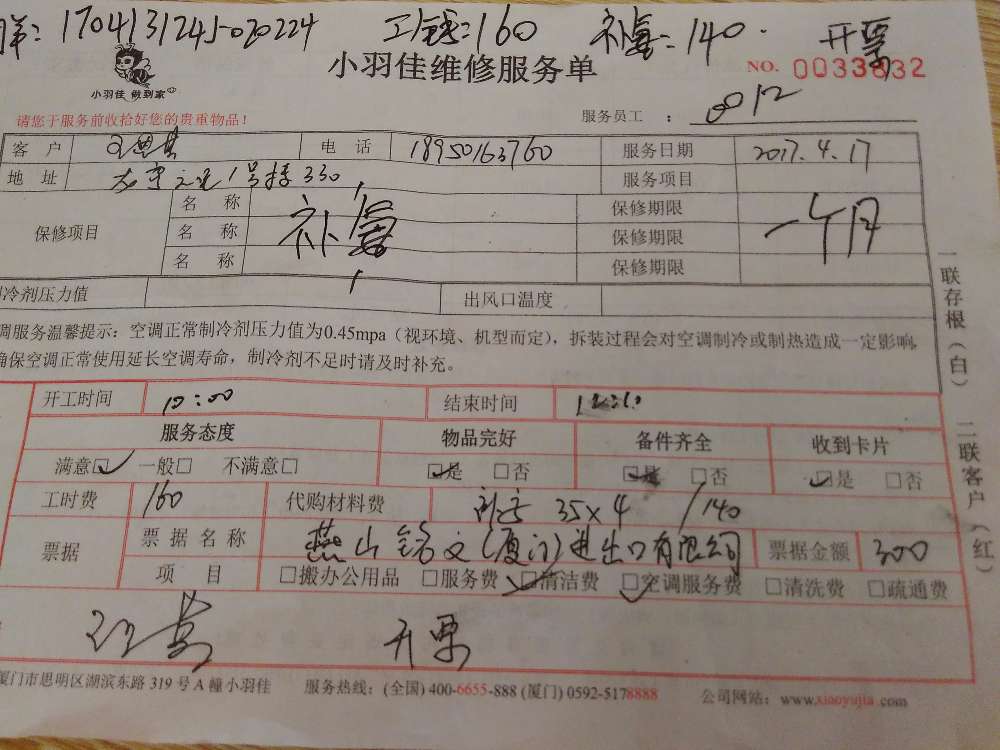 单: 1704131245-020224 工钱: 160 补氟: 140. 开票
小羽佳 做到家
小羽佳维修服务单
NO. 0033632
请您于服务前收拾好您的贵重物品!
服务员工 : 0012
客 户 电 话 18950163760 服务日期 2017.4.17
地 址 1号楼330 服务项目
保修项目 名 称 补氟 保修期限 一个月
名 称 保修期限
名 称 保修期限
冷剂压力值 出风口温度
调服务温馨提示: 空调正常制冷剂压力值为0.45mpa(视环境、机型而定), 拆装过程会对空调制冷或制热造成一定影响,
确保空调正常使用延长空调寿命, 制冷剂不足时请及时补充。
一联存根(白) 二联客户(红)
开工时间 10:00 结束时间
服务态度 物品完好 备件齐全 收到卡片
满意☑ 一般□ 不满意□ ☑是 □否 ☑是 □否 ☑是 □否
工时费 160 代购材料费 35×4 /140
票据 票 据 名 称 燕山铭文(厦门)进出口有限公司 票据金额 300
项 目 □搬办公用品 □服务费 □清洁费 ☑空调服务费 □清洗费 □疏通费
开票
厦门市思明区湖滨东路 319 号 A 幢小羽佳 服务热线: (全国) 400-6655-888 (厦门) 0592-5178888 公司网站: www.xiaoyujia.com